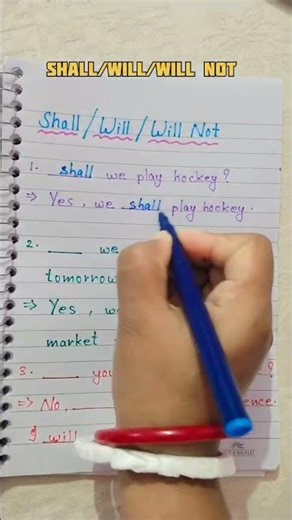 SHALL/WILL/WILL NOT
Shall/Will/Will Not
1. shall we play hockey?
⇒ Yes, we shall play hockey.
2. ____ we
tomorrow
⇒ Yes, w
market
3. ____ you ?
⇒ No, ____ ence.
I will